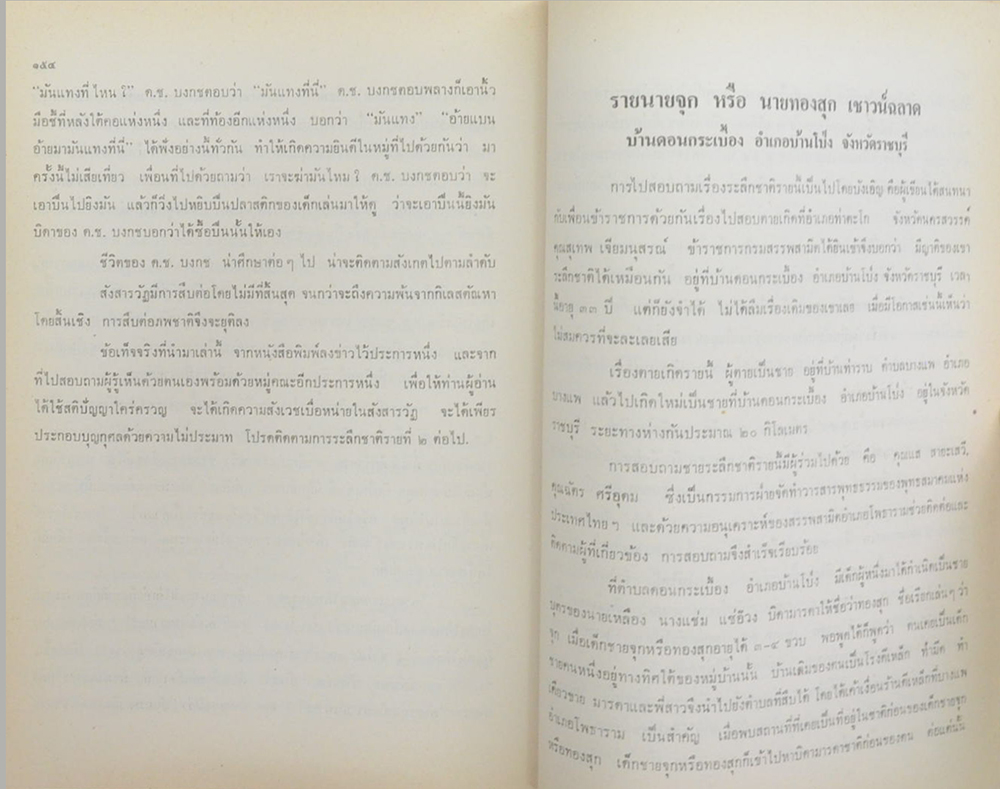 ๑๕๔
"มันแทงที่ไหน?" ด.ช. บงกชตอบว่า "มันแทงที่นี่" ด.ช. บงกชตอบพลางก็เอานิ้ว
มือชี้ที่หลังใต้คอแห่งหนึ่ง และที่ท้องอีกแห่งหนึ่ง บอกว่า "มันแทง" "อ้ายแบน
อ้ายมามันแทงที่นี่" ได้ฟังอย่างนี้ทั่วกัน ทำให้เกิดความยินดีในหมู่ที่ไปด้วยกันว่า มา
ครั้งนี้ไม่เสียเที่ยว เพื่อนที่ไปด้วยถามว่า เราจะฆ่ามันไหม? ด.ช. บงกชตอบว่า จะ
เอาปืนไปยิงมัน แล้วก็วิ่งไปหยิบปืนปลาสติกของเด็กเล่นมาให้ดู ว่าจะเอาปืนนี้ยิงมัน
บิดาของ ด.ช. บงกชบอกว่าได้ซื้อปืนนั้นให้เอง
ชีวิตของ ด.ช. บงกช น่าศึกษาต่อๆ ไป น่าจะติดตามสังเกตไปตามลำดับ
สังสารวัฏมีการสืบต่อโดยไม่มีที่สิ้นสุด จนกว่าจะถึงความพ้นจากกิเลสตัณหา
โดยสิ้นเชิง การสืบต่อภพชาติจึงจะยุติลง
ข้อเท็จจริงที่นำมาเล่านี้ จากหนังสือพิมพ์ลงข่าวไว้ประการหนึ่ง และจาก
ที่ไปสอบถามผู้รู้เห็นด้วยตนเองพร้อมด้วยหมู่คณะอีกประการหนึ่ง เพื่อให้ท่านผู้อ่าน
ได้ใช้สติปัญญาใคร่ครวญ จะได้เกิดความสังเวชเบื่อหน่ายในสังสารวัฏ จะได้เพียร
ประกอบบุญกุศลด้วยความไม่ประมาท โปรดติดตามการระลึกชาติรายที่ ๒ ต่อไป.
รายนายจุก หรือ นายทองสุก เชาวน์ฉลาด
บ้านดอนกระเบื้อง อำเภอบ้านโป่ง จังหวัดราชบุรี
การไปสอบถามเรื่องระลึกชาติรายนี้เป็นไปโดยบังเอิญ คือผู้เขียนได้สนทนา
กับเพื่อนข้าราชการด้วยกันเรื่องไปสอบตายเกิดที่อำเภอท่าตะโก จังหวัดนครสวรรค์
คุณสุเทพ เจียมนุสรณ์ ข้าราชการกรมสรรพสามิตได้ยินเข้าจึงบอกว่า มีญาติของเขา
ระลึกชาติได้เหมือนกัน อยู่ที่บ้านดอนกระเบื้อง อำเภอบ้านโป่ง จังหวัดราชบุรี เวลา
นี้อายุ ๓๓ ปี แต่ก็ยังจำได้ ไม่ได้ลืมเรื่องเดิมของเขาเลย เมื่อมีโอกาสเช่นนี้เห็นว่า
ไม่สมควรที่จะละเลยเสีย
เรื่องตายเกิดรายนี้ ผู้ตายเป็นชาย อยู่ที่บ้านทำราบ ตำบลบางแพ อำเภอ
บางแพ แล้วไปเกิดใหม่เป็นชายที่บ้านดอนกระเบื้อง อำเภอบ้านโป่ง อยู่ในจังหวัด
ราชบุรี ระยะทางห่างกันประมาณ ๒๐ กิโลเมตร
การสอบถามชายระลึกชาติรายนี้มีผู้ร่วมไปด้วย คือ คุณแส
คุณฉัตร ศรีอุดม ซึ่งเป็นกรรมการฝ่ายจัดทำวารสารพุทธธรรมของพุทธสมาคมแห่ง
ประเทศไทยฯ และด้วยความอนุเคราะห์ของสรรพสามิตอำเภอโพธารามช่วยติดต่อและ
ติดตามผู้ที่เกี่ยวข้อง การสอบถามจึงสำเร็จเรียบร้อย
ที่ตำบลดอนกระเบื้อง อำเภอบ้านโป่ง มีเด็กผู้หนึ่งมาได้กำเนิดเป็นชาย
บุตรของนายเหลือง นางแช่ม แซ่อึ้วง บิดามารดาให้ชื่อว่าทองสุก ชื่อเรียกเล่นๆ ว่า
จุก เมื่อเด็กชายจุกหรือทองสุกอายุได้ ๓-๔ ขวบ พอพูดได้ก็พูดว่า ตนเคยเป็นเด็ก
ชายคนหนึ่งอยู่ทางทิศใต้ของหมู่บ้านนั้น บ้านเดิมของตนเป็นโรงตีเหล็ก ทำมีด ทำ
เคียวขาย มารดาและพี่สาวจึงนำไปยังตำบลที่สืบได้ โดยได้เค้าเงื่อนร้านตีเหล็กที่บางแพ
อำเภอโพธาราม เป็นสำคัญ เมื่อพบสถานที่ที่เคยเป็นที่อยู่ในชาติก่อนของเด็กชายจุก
หรือทองสุก เด็กชายจุกหรือทองสุกก็เข้าไปหาบิดามารดาชาติก่อนของตน ต่อแต่นั้น